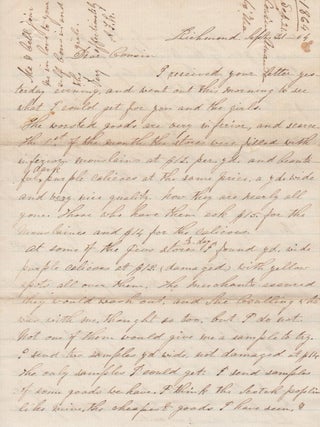 Richmond Sept. 21st 64
Dear Cousin
I received your letter yes-
terday evening, and went out this morning to see
what I could get for you and the girls.
The worsted goods are very inferior, and scarce
the 1st of the month the stores were filled with
inferior mouselines at $12. per yd. and beauti-
ful dark purple calicoes at the same price, a yd. wide
and very nice quality. Now they are nearly all
gone. Those who have them ask $15. for the
mouselaines and $14 for the calicoes.
At some of the few stores to day I found yd. wide
purple calicoes at $12. (damaged) with yellow
spots all over them. The merchants assured
they would wash out, and Mrs
was with me, thought so too, but I do not.
Not one of them would give me a sample to try.
I send two samples yd. wide, not damaged at $14
the only samples I could get. I send samples
of some goods we have. I think the black poplin
like mine, the cheapest goods I have seen, &
Ma & Bell join
me in love to you
all Cousin and
the girls.
Affectionately